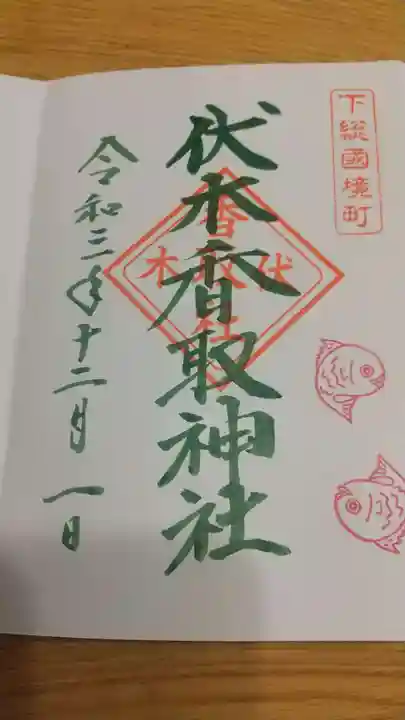 下総國境町
伏木香取神社
香取社
伏木
令和三年十二月一日